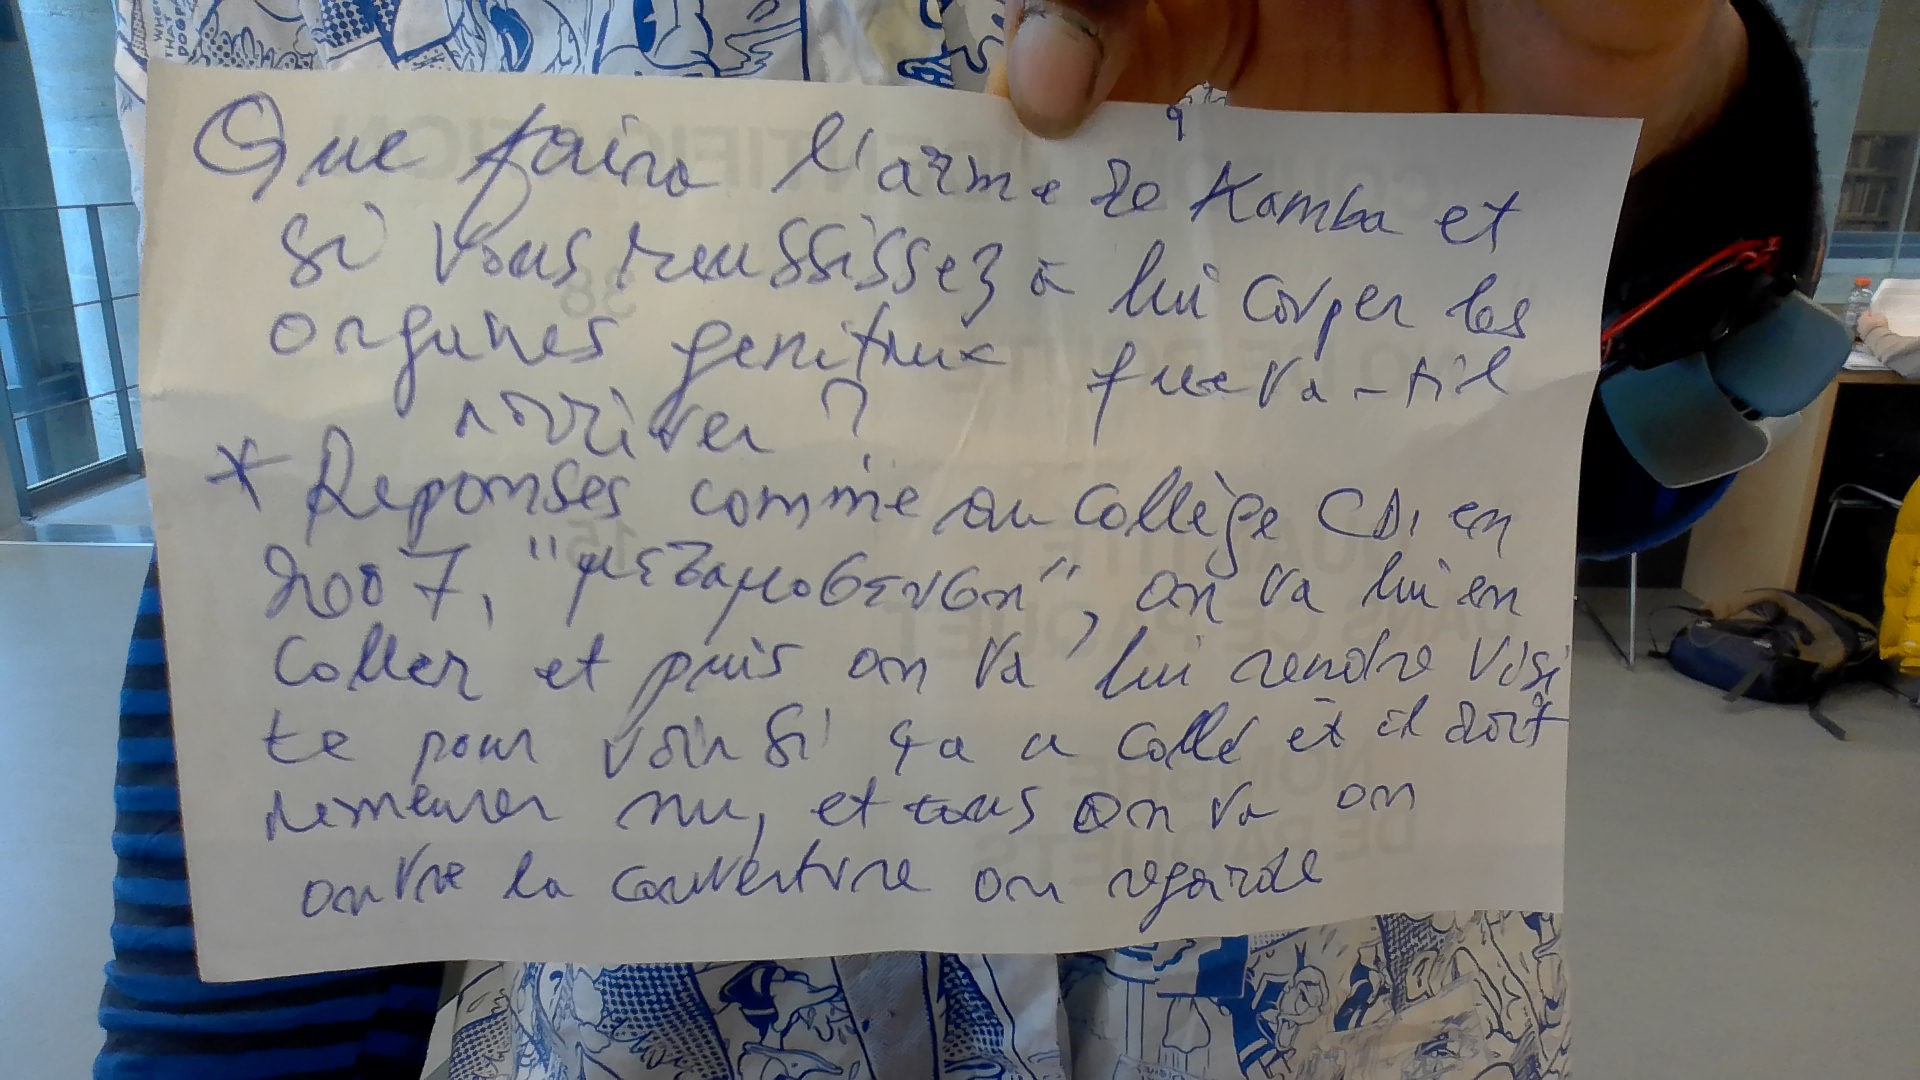 Que faire l'arme de Kamba et
si vous reussissez à lui couper les
organes genitaux que va-t-il
arriver ?
* Reponses comme au collège CD, en
2007, "μεταμοσενσn", on va lui en
coller et puis on va lui rendre visi
te pour voir si ça a collé et il doit
demeurer nu, et tous on va on
ouvre la couverture on regarde